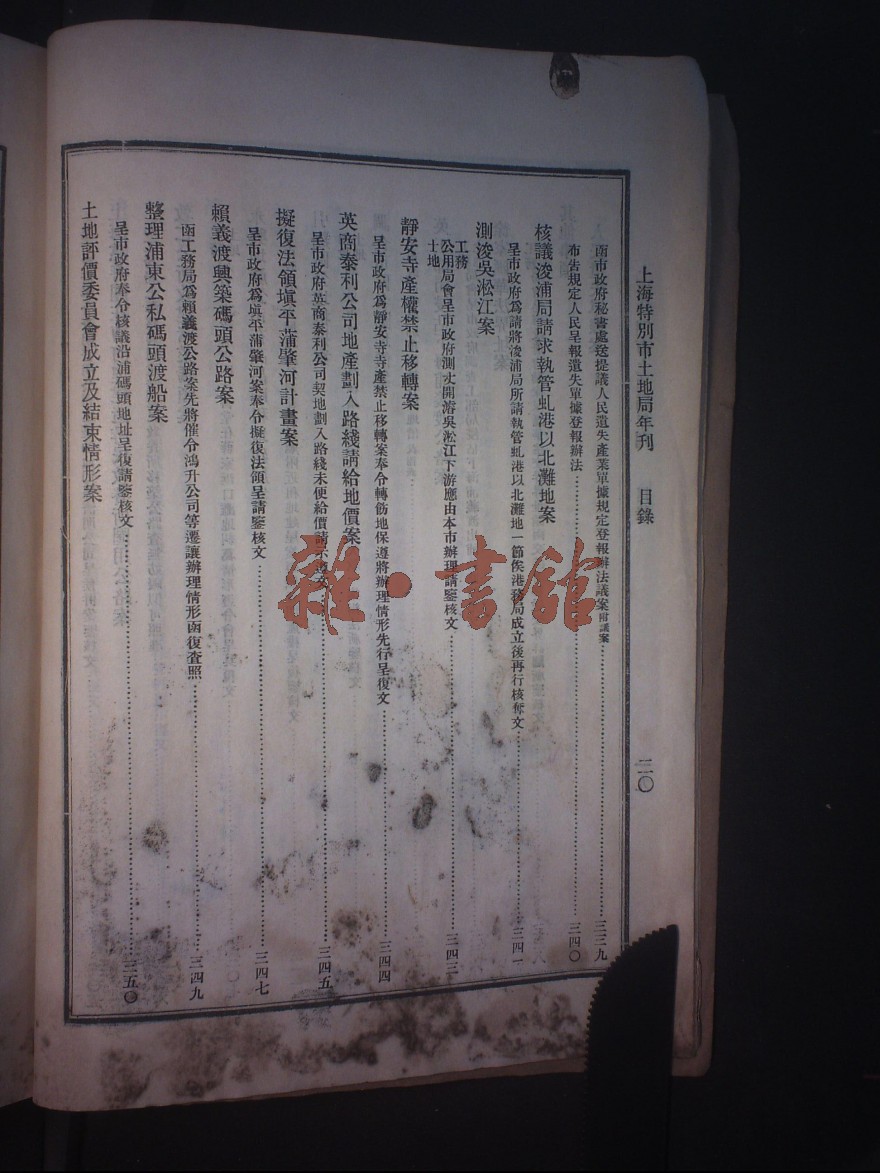 上海特別市土地局年刊　目錄　二〇
函市政府秘書處送提議人民遺失產業單據規定登報辦法議案附議案…………三三九
布告規定人民呈報遺失單據登報辦法…………三四〇
核議浚浦局請求執管虬港以北灘地案
呈市政府爲請將浚浦局所請執管虬港以北灘地一節俟港務局成立後再行核奪文…………三四一
測浚吳淞江案
工務公用土地局會呈市政府測丈開濬吳淞江下游應由本市辦理請鑒核文…………三四三
靜安寺產權禁止移轉案
呈市政府爲靜安寺寺產禁止移轉案奉令轉飭地保遵將辦理情形先行呈復文…………三四四
英商泰利公司地產劃入路綫請給地價案
呈市政府英商泰利公司契地劃入路綫未便給價請示遵文…………三四五
擬復法領塡平蒲肇河計畫案
呈市政府爲塡平蒲肇河案奉令擬復法領呈請鑒核文…………三四七
賴義渡興築碼頭公路案
函工務局爲賴義渡公路案先將催令鴻升公司等遷讓辦理情形函復查照…………三四九
整理浦東公私碼頭渡船案
呈市政府奉令核議沿浦碼頭地址呈復請鑒核文…………三五〇
土地評價委員會成立及結束情形案
雜·書館